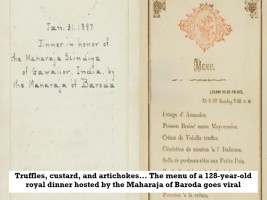 Jan. 31. 1897
Dinner in honor of
the Maharaja Scindiya
of Gwalior, India, by
the Maharaja of Baroda
MENU.
LAXMI VILAS PALACE,
31-1-97
Potage d'Amandes.
Poisson Braisé sauce Mayonnaise.
Crême de Volaille truffes.
Côtelettes de mouton à l' Italienne.
Selle de perdreau rôtie aux Petits Pois.
Truffles, custard, and artichokes... The menu of a 128-year-old
royal dinner hosted by the Maharaja of Baroda goes viral